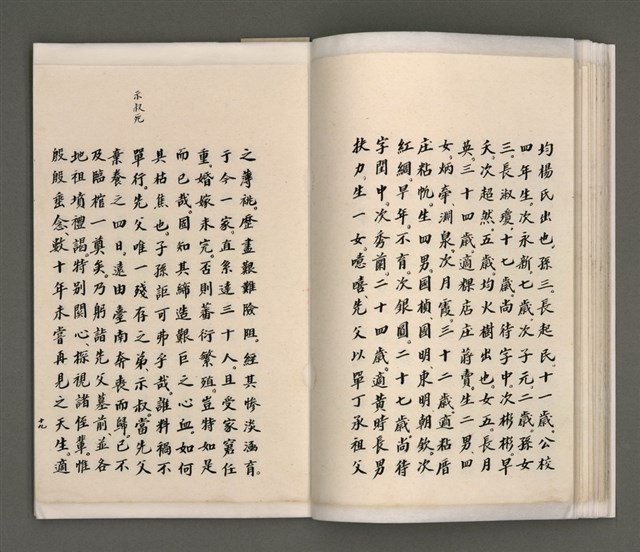 均楊氏出也。孫三。長起民。十一歲。公校
四年生。次永新七歲。次子元二歲。孫女
三。長淑瓊。十七歲。尚待字中。次彬彬。早
夭。次超然。五歲。均火樹出也。女五。長月
英。三十四歲。適粿店庄蔣賣。生二男。四
女。炳牽、淵泉。次月霞。三十二歲。適粘厝
庄粘帆。生四男。國楨國明東明朝欽。次
紅綢。早年。不育。次銀圓。二十七歲。尚待
字閨中。次秀蘭。二十四歲。適黃時長男
扶力。生一女。噫嘻、先父以單丁承祖父
之薄祧。歷盡艱難險阻。經其慘淡涵育。
于今一家。直系達三十人。且受家窘任
重婚嫁未完。否則蕃衍繁殖。豈特如是
而已哉。固知其締造艱巨之心血。如何
具枯焦也。子孫詎可弗乎哉。誰料稿不
單行。先父唯一殘存之弟、示叔。當先父
棄養之四日。遠由臺南奔喪而歸。已不
及臨棺一奠矣。乃躬詣先父墓前並各
地祖墳禮謁。特別關心、探視諸侄輩。惟
殷殷垂念、數十年未嘗再見之天生。適
示叔死
十九